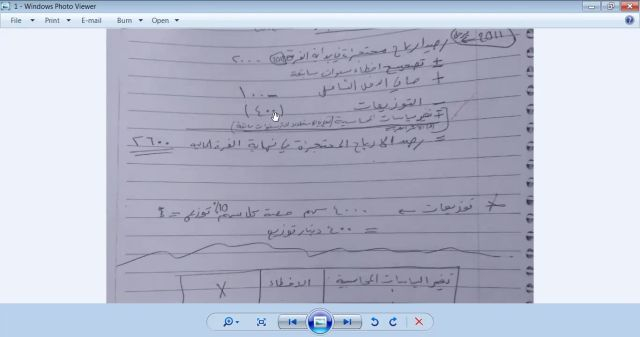 1 - Windows Photo Viewer
File Print E-mail Burn Open
2011
رصيد ارباح محتجزة بداية الفترة 2000
± تصحيح اخطاء سنوات سابقة
+ صافي الدخل الشامل 1000
- التوزيعات (400)
± تغير سياسات محاسبية
= رصيد الارباح المحتجزة في نهاية الفترة المالية 2600
توزيعات 4000 سهم حصة كل سهم 10% توزيع =
= 400 دينار توزيع
تغير السياسات المحاسبية الاخطاء X